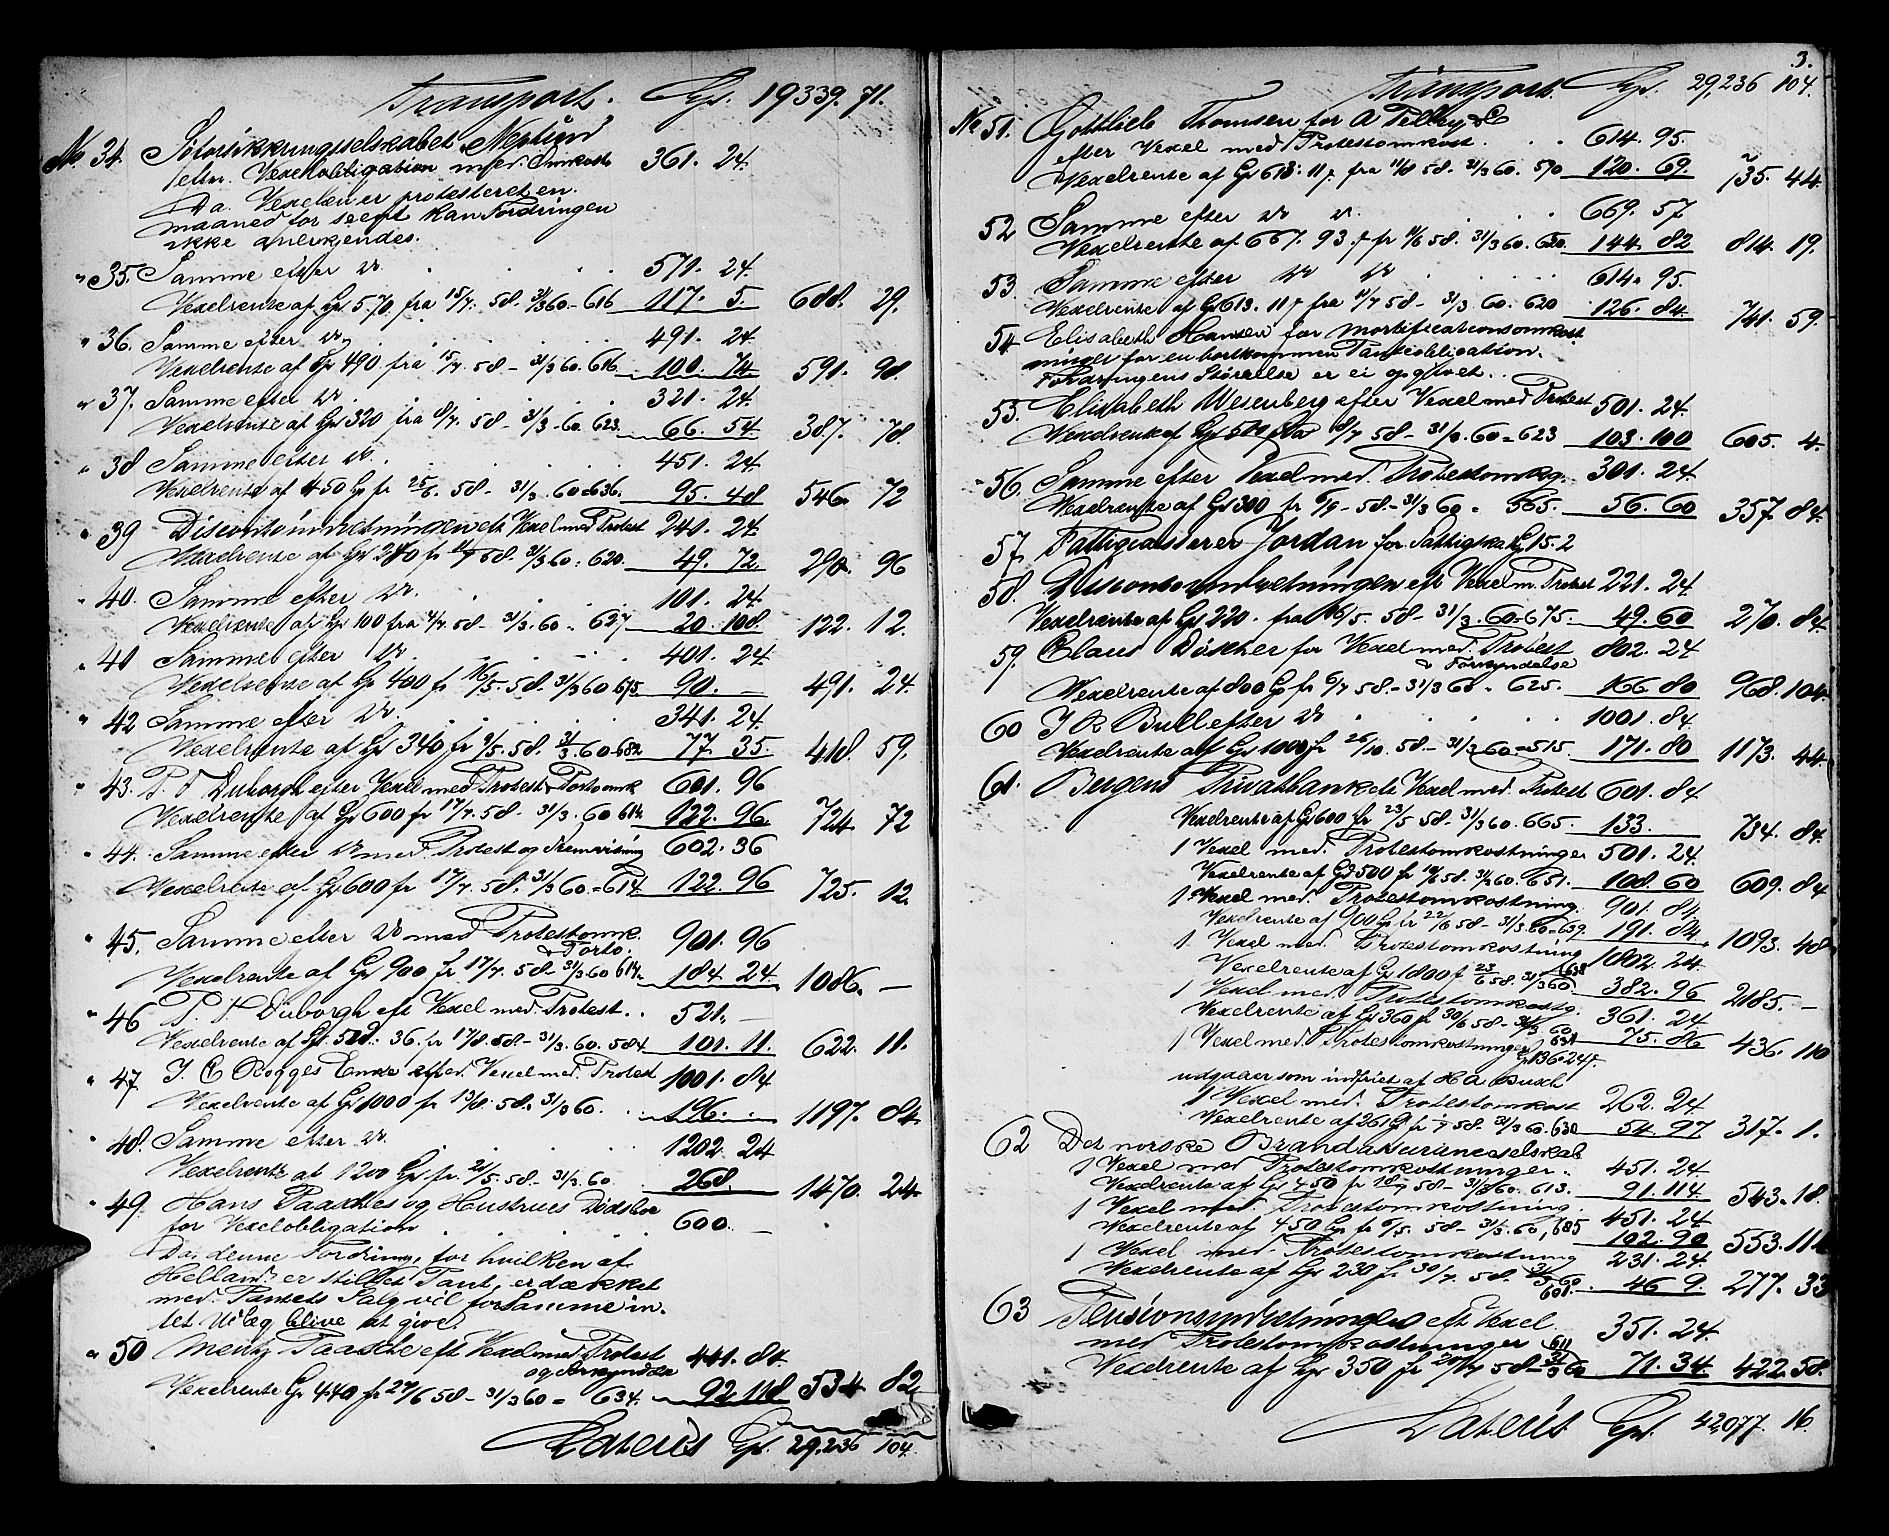 Transport. Spd. 19339. 71.
No 34. Søforsikkringsselskabet Neptun
efter Vexelobligation med Omkostn 361. 24.
Da Vexelen er protesteret en
maaned for seent kan Fordringen
ikke anerkjendes.
" 35. Samme efter do. 571. 24.
Vexelrente af Spd 570 fra 15/7. 58 - 31/3 60 - 616 117. 5. 688. 29.
" 36. Samme efter do. 491. 24.
Vexelrente af Spd 490 fra 15/7. 58 - 31/3 60. 616 100. 74. 591. 98.
" 37. Samme efter do. 321. 24.
Vexelrente af Spd 320 fra 8/7. 58 - 31/3 - 60. 623. 66. 54. 387. 78.
" 38 Samme efter do. 451. 24
Vexelrente af 450 Spd fr 25/6. 58 - 31/3. 60 = 636. 95. 48 546. 72
" 39 Discontoindretningen eft Vexel med Protest 241. 24
Vexelrente af Spd 240 fr 58. 31/3 60. 620. 49. 72. 290. 96
" 40. Samme efter do. 101. 24.
Vexelrente af Spd 100 fra 4/7. 58 - 31/3. 60 = 627 20. 108. 122. 12.
" 41 Samme efter do. 401. 24
Vexelrente af Spd 400 fr 16/5. 58 - 31/3 60 675 90. — 491. 24.
" 42 Samme efter do. 341. 24.
Vexelrente af Spd 340 fr 9/5. 58. 31/3. 60. 682 77. 35. 418. 59.
" 43. P. T Duborgh efter Vexel med Protest & Portoomk 601. 96
Vexelrente af Spd 600 fr 17/7. 58 - 31/3. 60 614. 122. 96 724. 72
" 44. Samme efter do med Protest og Fremvisning 602. 36
Vexelrente af Spd 600 fr 17/7. 58. 31/3 60. = 614. 122. 96 725. 12.
" 45. Samme efter do med Protestomk.
& Porto. 901. 96
Vexelrente af Spd 900 fr 17/7. 58 - 31/3 60 614. 184. 24. 1086. —
" 46 P. T Duborgh eft Vexel med Protest. 521. —
Vexelrente af Spd. 36. fr 17/8. 58 - 31/3. 60. 584 101. 11. 622. 11.
" 47. J. C. Enke efter Vexel med Protest 1001. 84
Vexelrente af Spd 1000 fr 13/8. 58. 31/3 60. 196. . 1197. 84.
" 48. Samme efter do. 1202. 24
Vexelrente af 1200 Spd fr. 21/5. 58 - 31/3. 60. 268. 1470. 24.
" 49. Hans Paasches og Hustrues Dødsbo
for Vexelobligation 600. —
Da denne Fordring, for hvilken af
Helland er stillet Pant, er dækket
med Pantets Salg vil for Samme in-
tet Udlæg blive at give.
" 50 Paasche eft Vexel med Protest
og Forkyndelse 441. 84.
Vexelrente Spd 440 fr 27/6 58 - 31/3 60 = 634. 92. 118 534. 82.
Lateris Spd. 29.236 104.
3.
Transport. Spd. 29,236 104.
No 51. Gottlieb Thomsen for A Tilley & Co
efter Vexel med Protestomkost. 614. 95.
Vexelrente af Spd 613. 11 fra 11/8 58. 31/3 60. 590 120. 69. 735. 44.
52 Samme efter do do. 669. 57
Vexelrente af 667. 93. fr 11/6 58. 31/3 60. 650. 144. 82 814. 19.
53. Samme efter do do 614. 95.
Vexelrente af Spd 613. 11 fra 11/7 58 - 31/3. 60. 620 126. 84. 741. 59.
54. Elisabeth Hansen for Mortificationsomkost
for en bortkommen Panteobligation.
Fordringens Størrelse er ei opgivet.
55. Elisabeth Wesenberg efter Vexel med Protest 501. 24.
Vexelrente af Spd 500 fra 8/7 58 - 31/3. 60 = 623 103. 100 605. 4.
" 56. Samme efter Vexel med Protestomkg. 301. 24.
Vexelrente af Spd 300 fr 6/9 - 58 - 31/3 60 = 565. 56. 60 357. 84.
57. Fattigcasserer Jordan for Fattigskat Spd 15. 2
58. Discontoindretningen eft Vexel m. Protest 221. 24
Vexelrente af Spd 220. fra 16/5. 58 - 31/3. 60 - 675. 49. 60 270. 84.
59. Claus Døscher for Vexel med Protest
& Forkyndelse 802. 24
Vexelrente af 800 Spd fr 6/7 58 - 31/3 60 = 625. 166. 80 968. 104.
60 J R Bull efter do 1001. 84
Vexelrente af Spd 1000 fr 26/10. 58 - 31/3 60 = 515. 171. 80 1173. 44.
61. Bergens Privatbank eft Vexel med Protest 601. 84
Vexelrente af Spd 600 fr 23/5 58 - 31/3 60. 665. 133. 734. 84.
1 Vexel med Protestomkostninger 501. 24.
Vexelrente af Spd 500 fr 58. 31/3 60. 651. 108. 60 609. 84
1 Vexel med Protestomkostning 901. 84
Vexelrente af 900 Spd fr 22/6 58 - 31/3 60 = 639. 191. 84. 1093. 48
1. Vexel med Protestomkostning 1802. 24
Vexelrente af Spd 1800 f. 23/6 58. 31/3 60. 638 382. 96 2185. —
1 Vexel med Protestomkostg. 361. 24
Vexelrente af Spd 360 fr 30/6 58 - 31/3 60 631 75. 86 436. 110
1 Vexel med Protestomkostninger Spd 136. 24
udgaaer som indfriet af H A Busch
1 Vexel med Protestomkost 262. 24
Vexelrente af 261 Spd fr 58. 31/3 60. 630 54. 97 317. 1.
62 Det norske Brandassuranceselskab
1 Vexel med Protestomkostninger. 451. 24
Vexelrente af Spd 450 fr 18/7 58 - 31/3 60. 613. 91. 114. 543. 18.
1 Vexel med Protestomkostning. 451. 24
Vexelrente af 450 Spd fr 6/5. 58 - 31/3. 60, 685 102. 90 553. 114
1 Vexel med Protestomkostning 231. 24.
Vexelrente af Spd 230 fr 30/7. 58. 31/3 60 601. 46 9. 277. 33
63 Pensionsindretningen eft Vexel
med Protestomkostninger 351. 24.
Vexelrente af Spd 350 fr 20/7 58 - 31/3 60 611 71. 34. 422. 58.
Lateris Spd. 42,077. 16.